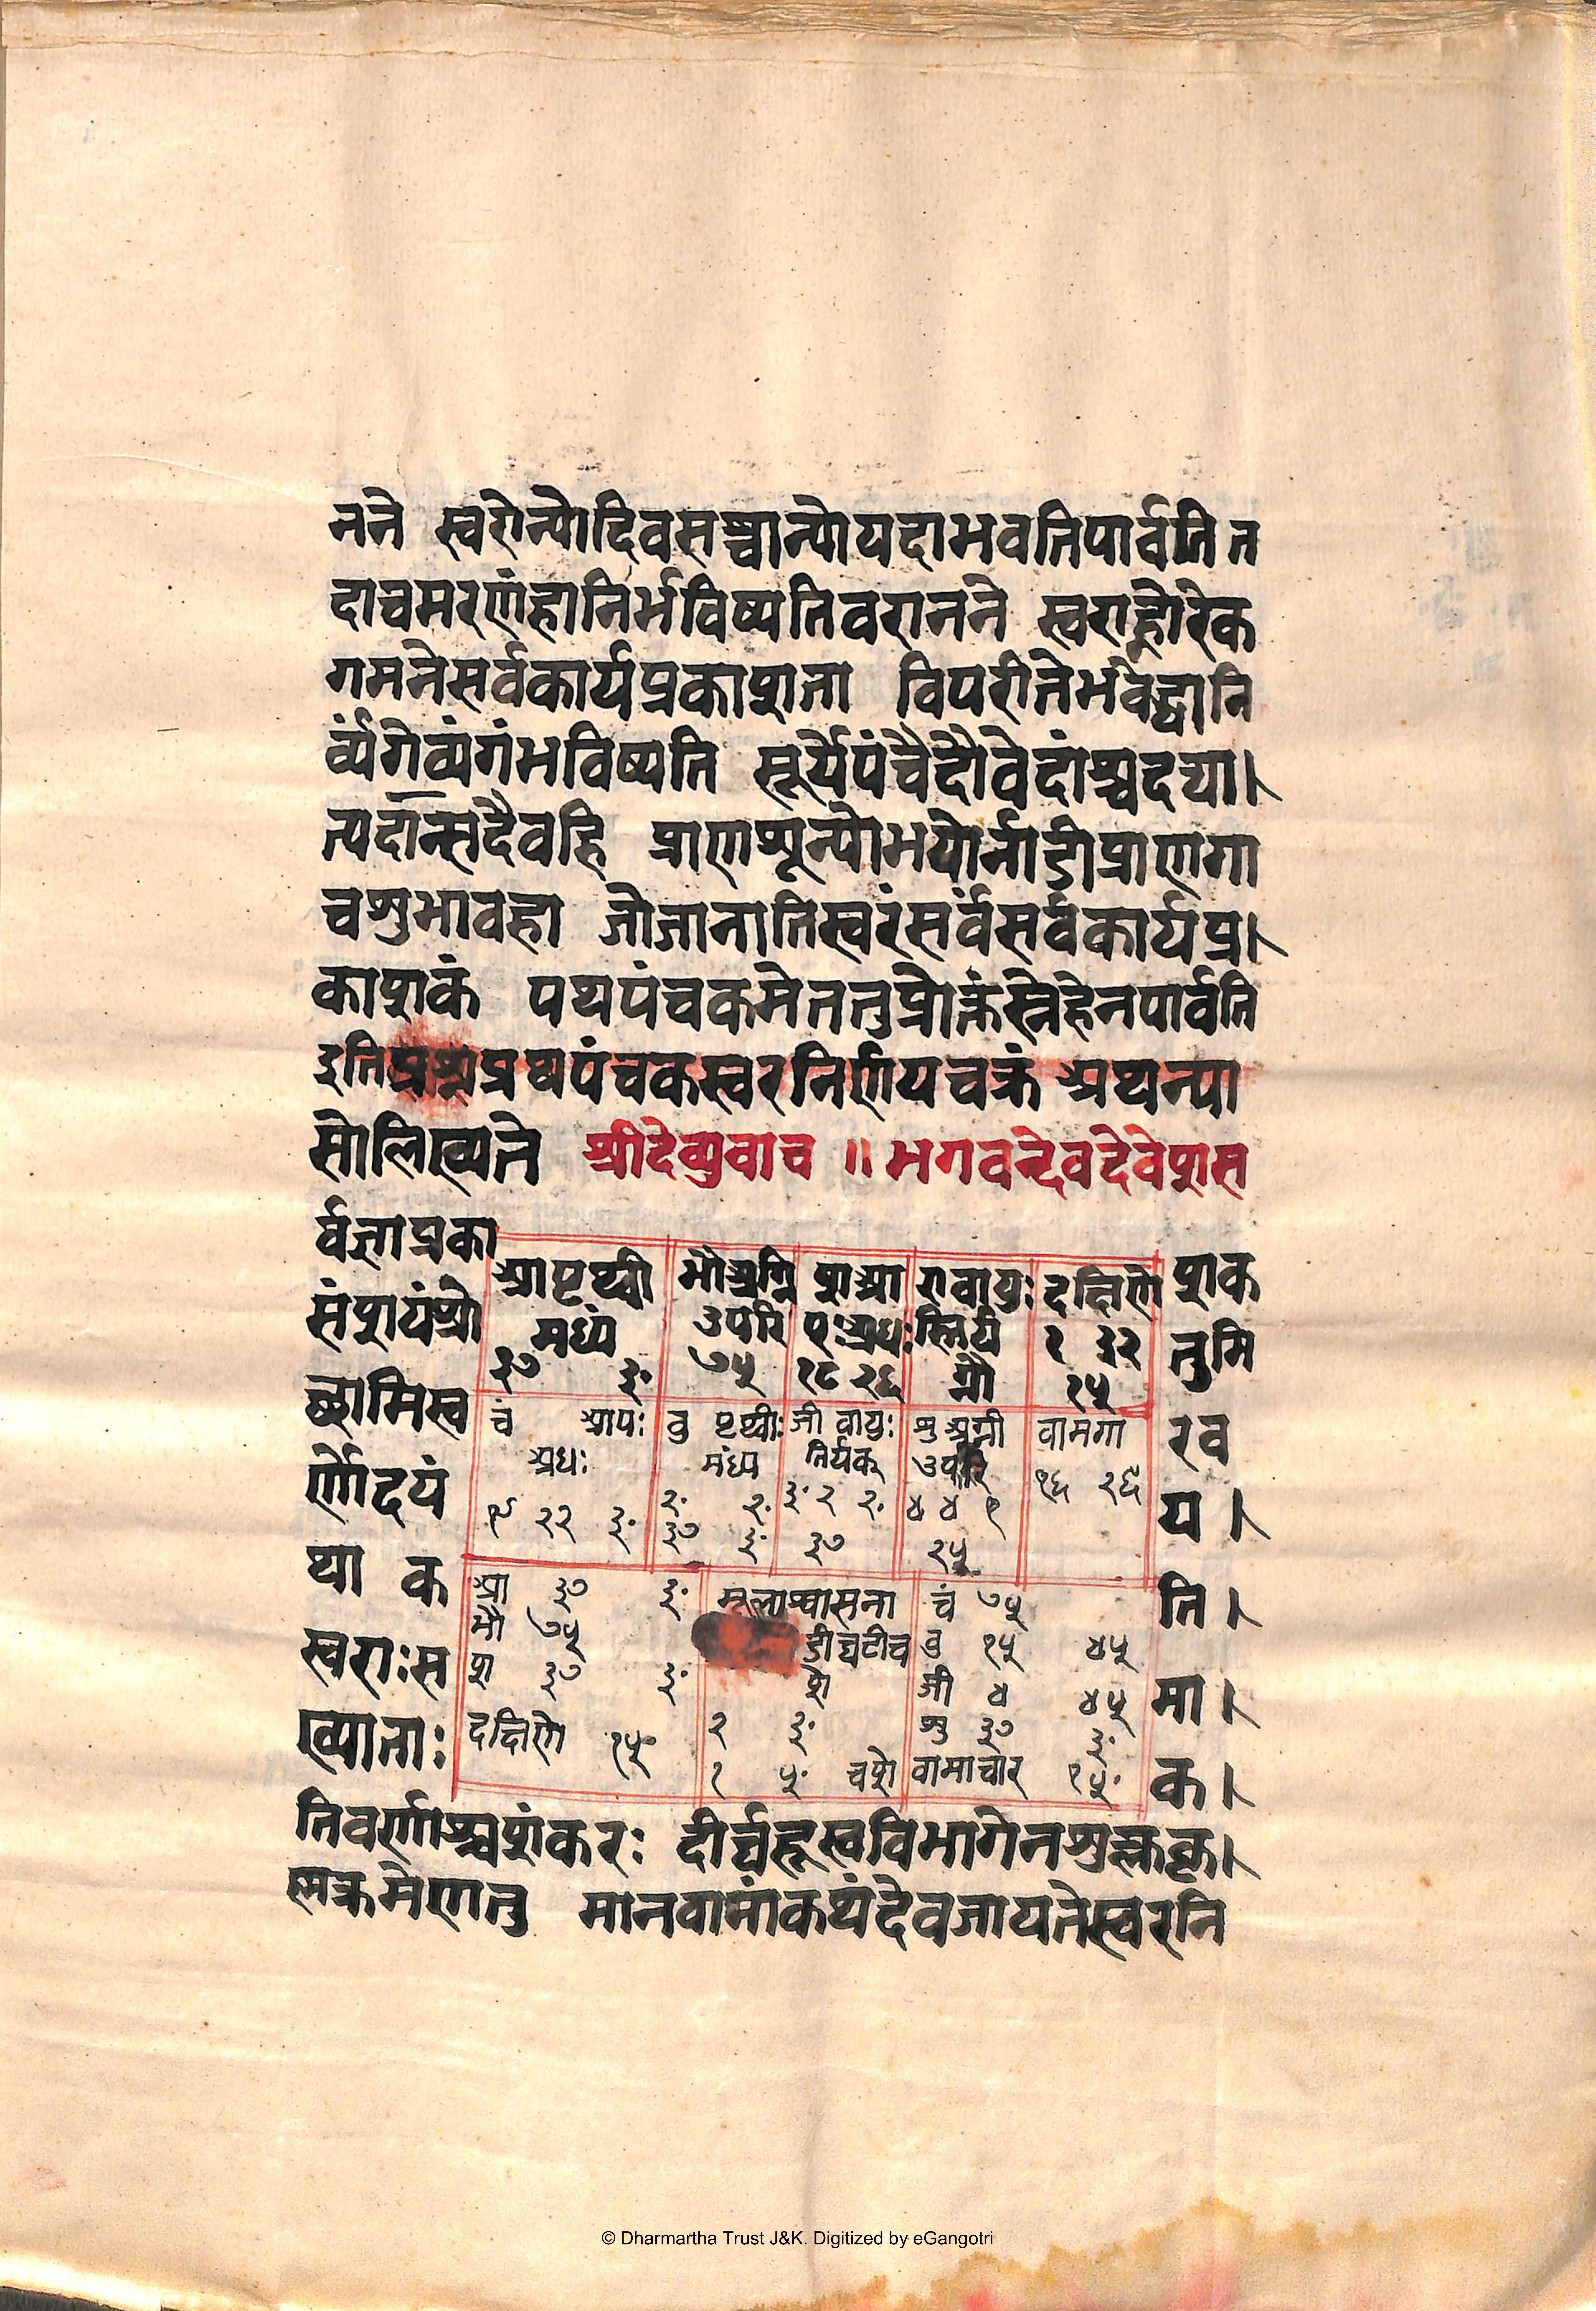 नने स्वरोन्योदिवसश्चान्योयदाभवतिपार्वति त
दाचमरणंहानिर्भविष्यतिवरानने स्वराह्नोरेक
गमनेसर्वकार्यप्रकाशता विपरीतेभवेद्धानि
र्व्यंगेव्यंगंभविष्यति सूर्यैपंचैदौवेदांश्चदद्या।
त्पदान्सदैवहि प्राणशून्योभयोर्नाडीप्राणगा
चशुभावहा जोजानातिस्वरंसर्वंसर्वकार्यप्र।
काशकं पथपंचकमेततुप्रोक्तंस्नेहेनपार्वति
इतिप्रथपंचकस्वरनिर्णयचक्रं अथन्या
सोलिख्यते श्रीदेव्युवाच ॥ भगवन्देवदेवेशस
र्वज्ञाप्रका शक
संशयंश्रो तुमि
छामिस्व रव
र्णोदयं य।
था क ति।
स्वराःस मा।
ख्याताः क।
आपृथ्वी मध्यं ३७ ३॰
भौअग्नि उपरि ७५
शआ पःअधः १८ २६
रावायुः स्तिर्य ग्नौ
दक्षिणे १ ३२ १५
चं आपः अधः १९ २२ ३॰
वु पृथ्वीः मंध्य २॰ २॰ ३७ ३॰
जी वायुः तिर्यक् ३॰ २ २॰ ३७
शु अग्नी उपरि ४ ४ १ २५
वामगा १६ २६
आ ३७ ३॰
भौ ७५
श ३७ ३॰
दक्षिणे १५॰
मूलाश्वासना
डीघटीच
शे
२ ३॰
१ ५॰ चशे
चं ७५
वु १५ ४५
जी ४ ४५
शु ३७ ३॰
वामाचार १५॰
तिवर्णाश्चशंकरः दीर्घह्रस्वविभागेनशुक्लकृ।
ष्णक्रमेणतु मानवानांकथंदेवजायतेस्वरनि
© Dharmartha Trust J&K. Digitized by eGangotri